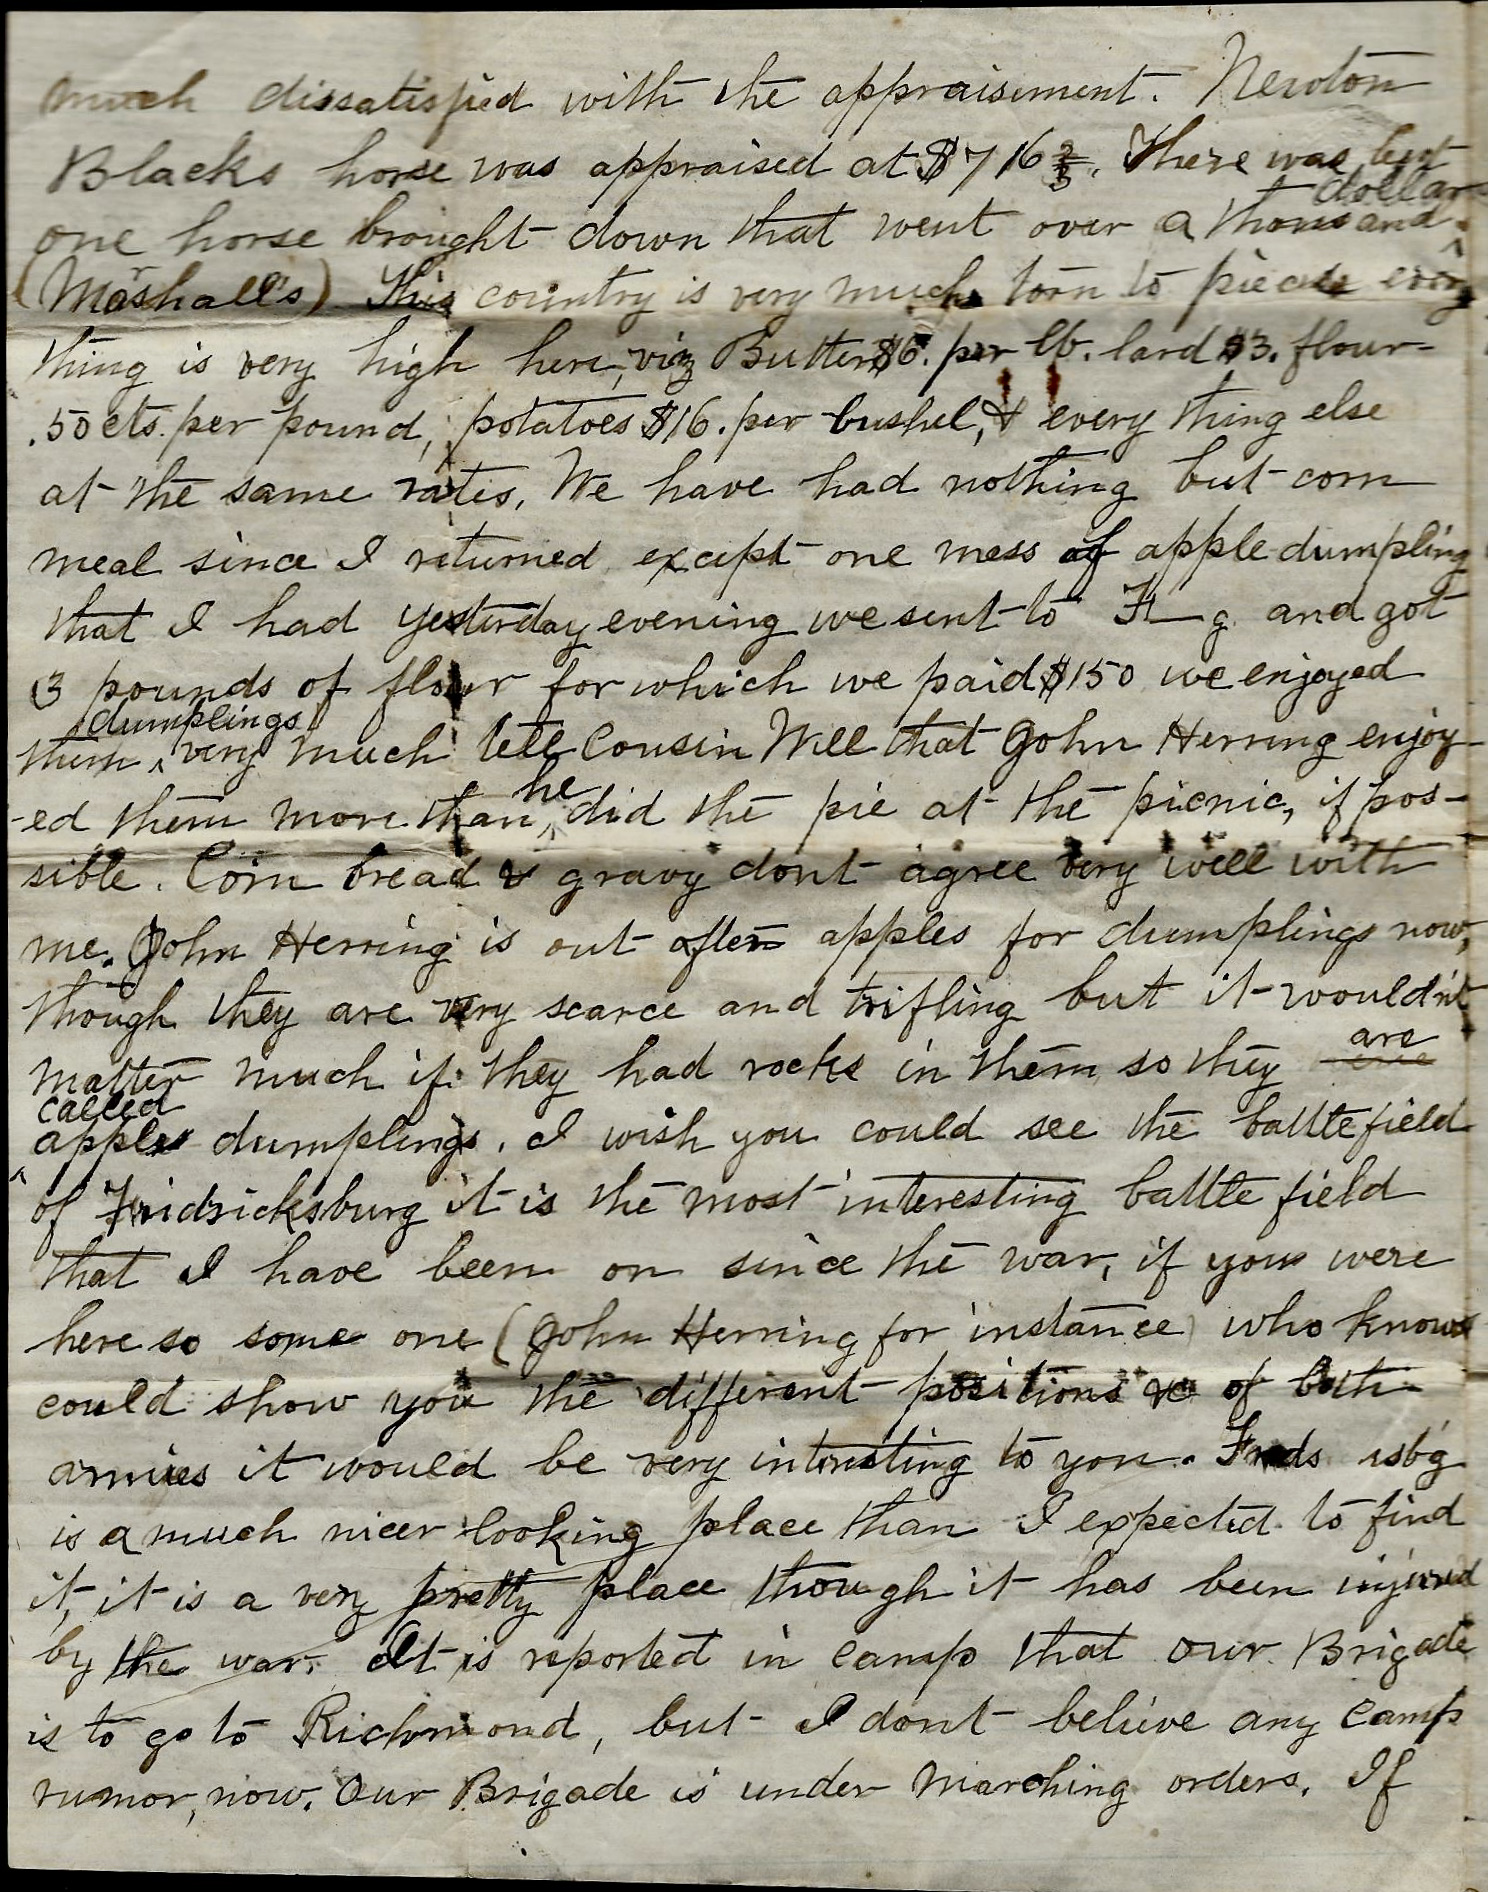 much dissatisfied with the appraisement. Newton
Blacks horse was appraised at $716 2/3. There was but
one horse brought down that went over a thousand dollar.
(Marshall's) This country is very much torn to pieces every
thing is very high here, viz Butter $6. per lb. lard $3. flour
.50 cts. per pound, potatoes $16. per bushel, & every thing else
at the same rates. We have had nothing but corn
meal since I returned except one mess of apple dumpling
that I had yesterday evening we sent to F—g. and got
3 pounds of flour for which we paid $150 we enjoyed
them dumplings very much tell Cousin Will that John Herring enjoy-
-ed them more than he did the pie at the picnic, if pos-
sible. Corn bread & gravy dont agree very well with
me. John Herring is out after apples for dumplings now,
though they are very scarce and trifling but it wouldn't
matter much if they had rocks in them so they are
called apple dumplings. I wish you could see the battlefield
of Fridricksburg it is the most interesting battle field
that I have been on since the war, if you were
here so some one (John Herring for instance) who knows
could show you the different positions &c of both
armies it would be very interesting to you. Freds icsb'g
is a much nicer looking place than I expected to find
it, it is a very pretty place though it has been injured
by the war. It is reported in camp that our Brigade
is to go to Richmond, but I dont believe any camp
rumor, now. Our Brigade is under marching orders. If